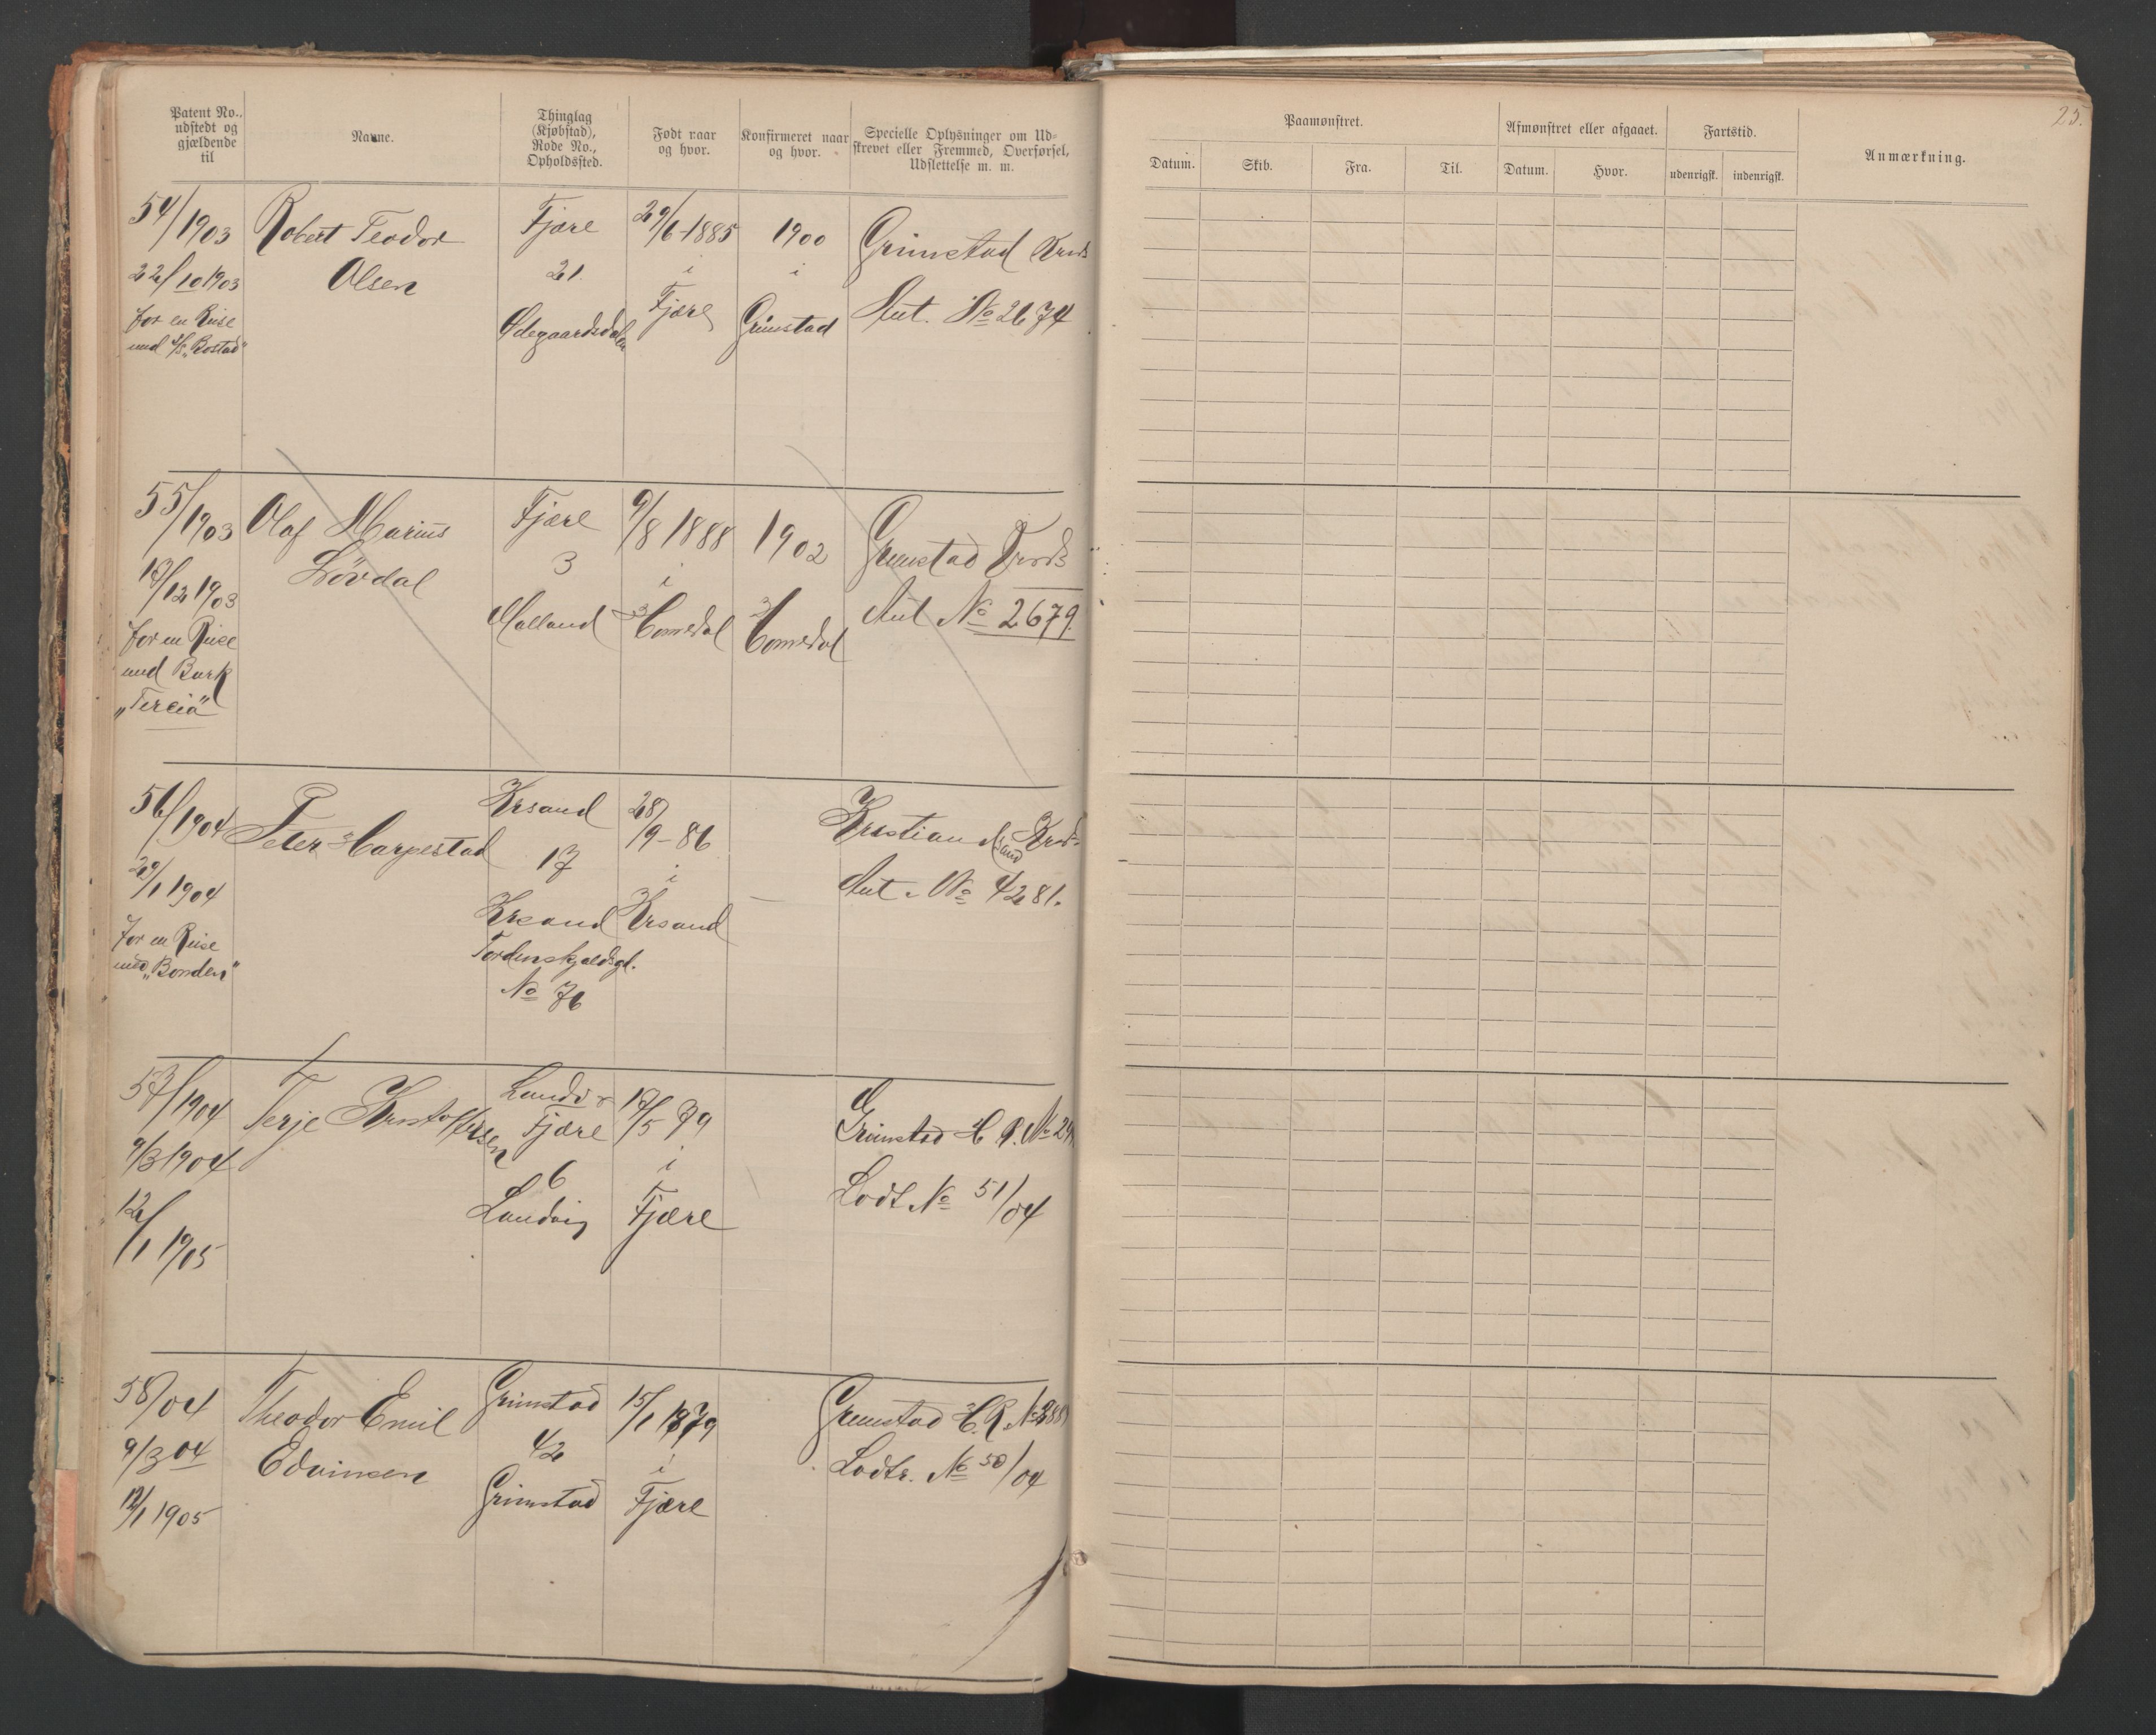 Patent No., udstedt og gjældende til
Navne.
Thinglag (Kjøbstad), Rode No., Opholdssted.
Født naar og hvor.
Konfirmeret naar og hvor.
Specielle Oplysninger om Udskrevet eller Fremmed, Overførsel, Udslettelse m. m.
Paamønstret.
Datum.
Skib.
Fra.
Til.
Afmønstret eller afgaaet.
Datum.
Hvor.
Fartstid.
udenrigsk.
indenrigsk.
Anmærkning.
25.
54/1903
22/10 1903
for en Reise
med S/S „Rostad"
Robert Teodor
Olsen
Fjære
21
Ødegaardsdalen
29/6-1885
i
Fjære
1900
i
Grimstad
Grimstad Krds
Ant. No 2674
55/1903
18/12 1903
for en Reise
med Bark
„Tercia"
Olaf Marius
Lövdal
Fjære
3
Molland
9/8 1888
i
Homedal
1902
Homedal
Grimstad Krds
Ant No 2679.
56/1904
29/1 1904
for en Reise
med „Bonden"
Peter Harpestad
Krsand
17
Krsand
Tordenskjoldsgd.
No 76
28/9-86
i
Krsand
—
Kristiansand Krds
Ant. No 4281.
57/1904
9/3 1904
12/1 1905
Terje Kristoffersen
Landv
Fjære
6
Landvig
17/5 79
i
Fjære
Grimstad H. R. No
Lodt. No 51/04
58/04
9/3 04
12/1 1905
Theodor Emil
Edvinsen
Grimstad
42
Grimstad
15/1 1879
i
Fjære
Grimstad H. R. No
Lodtr. No 50/04